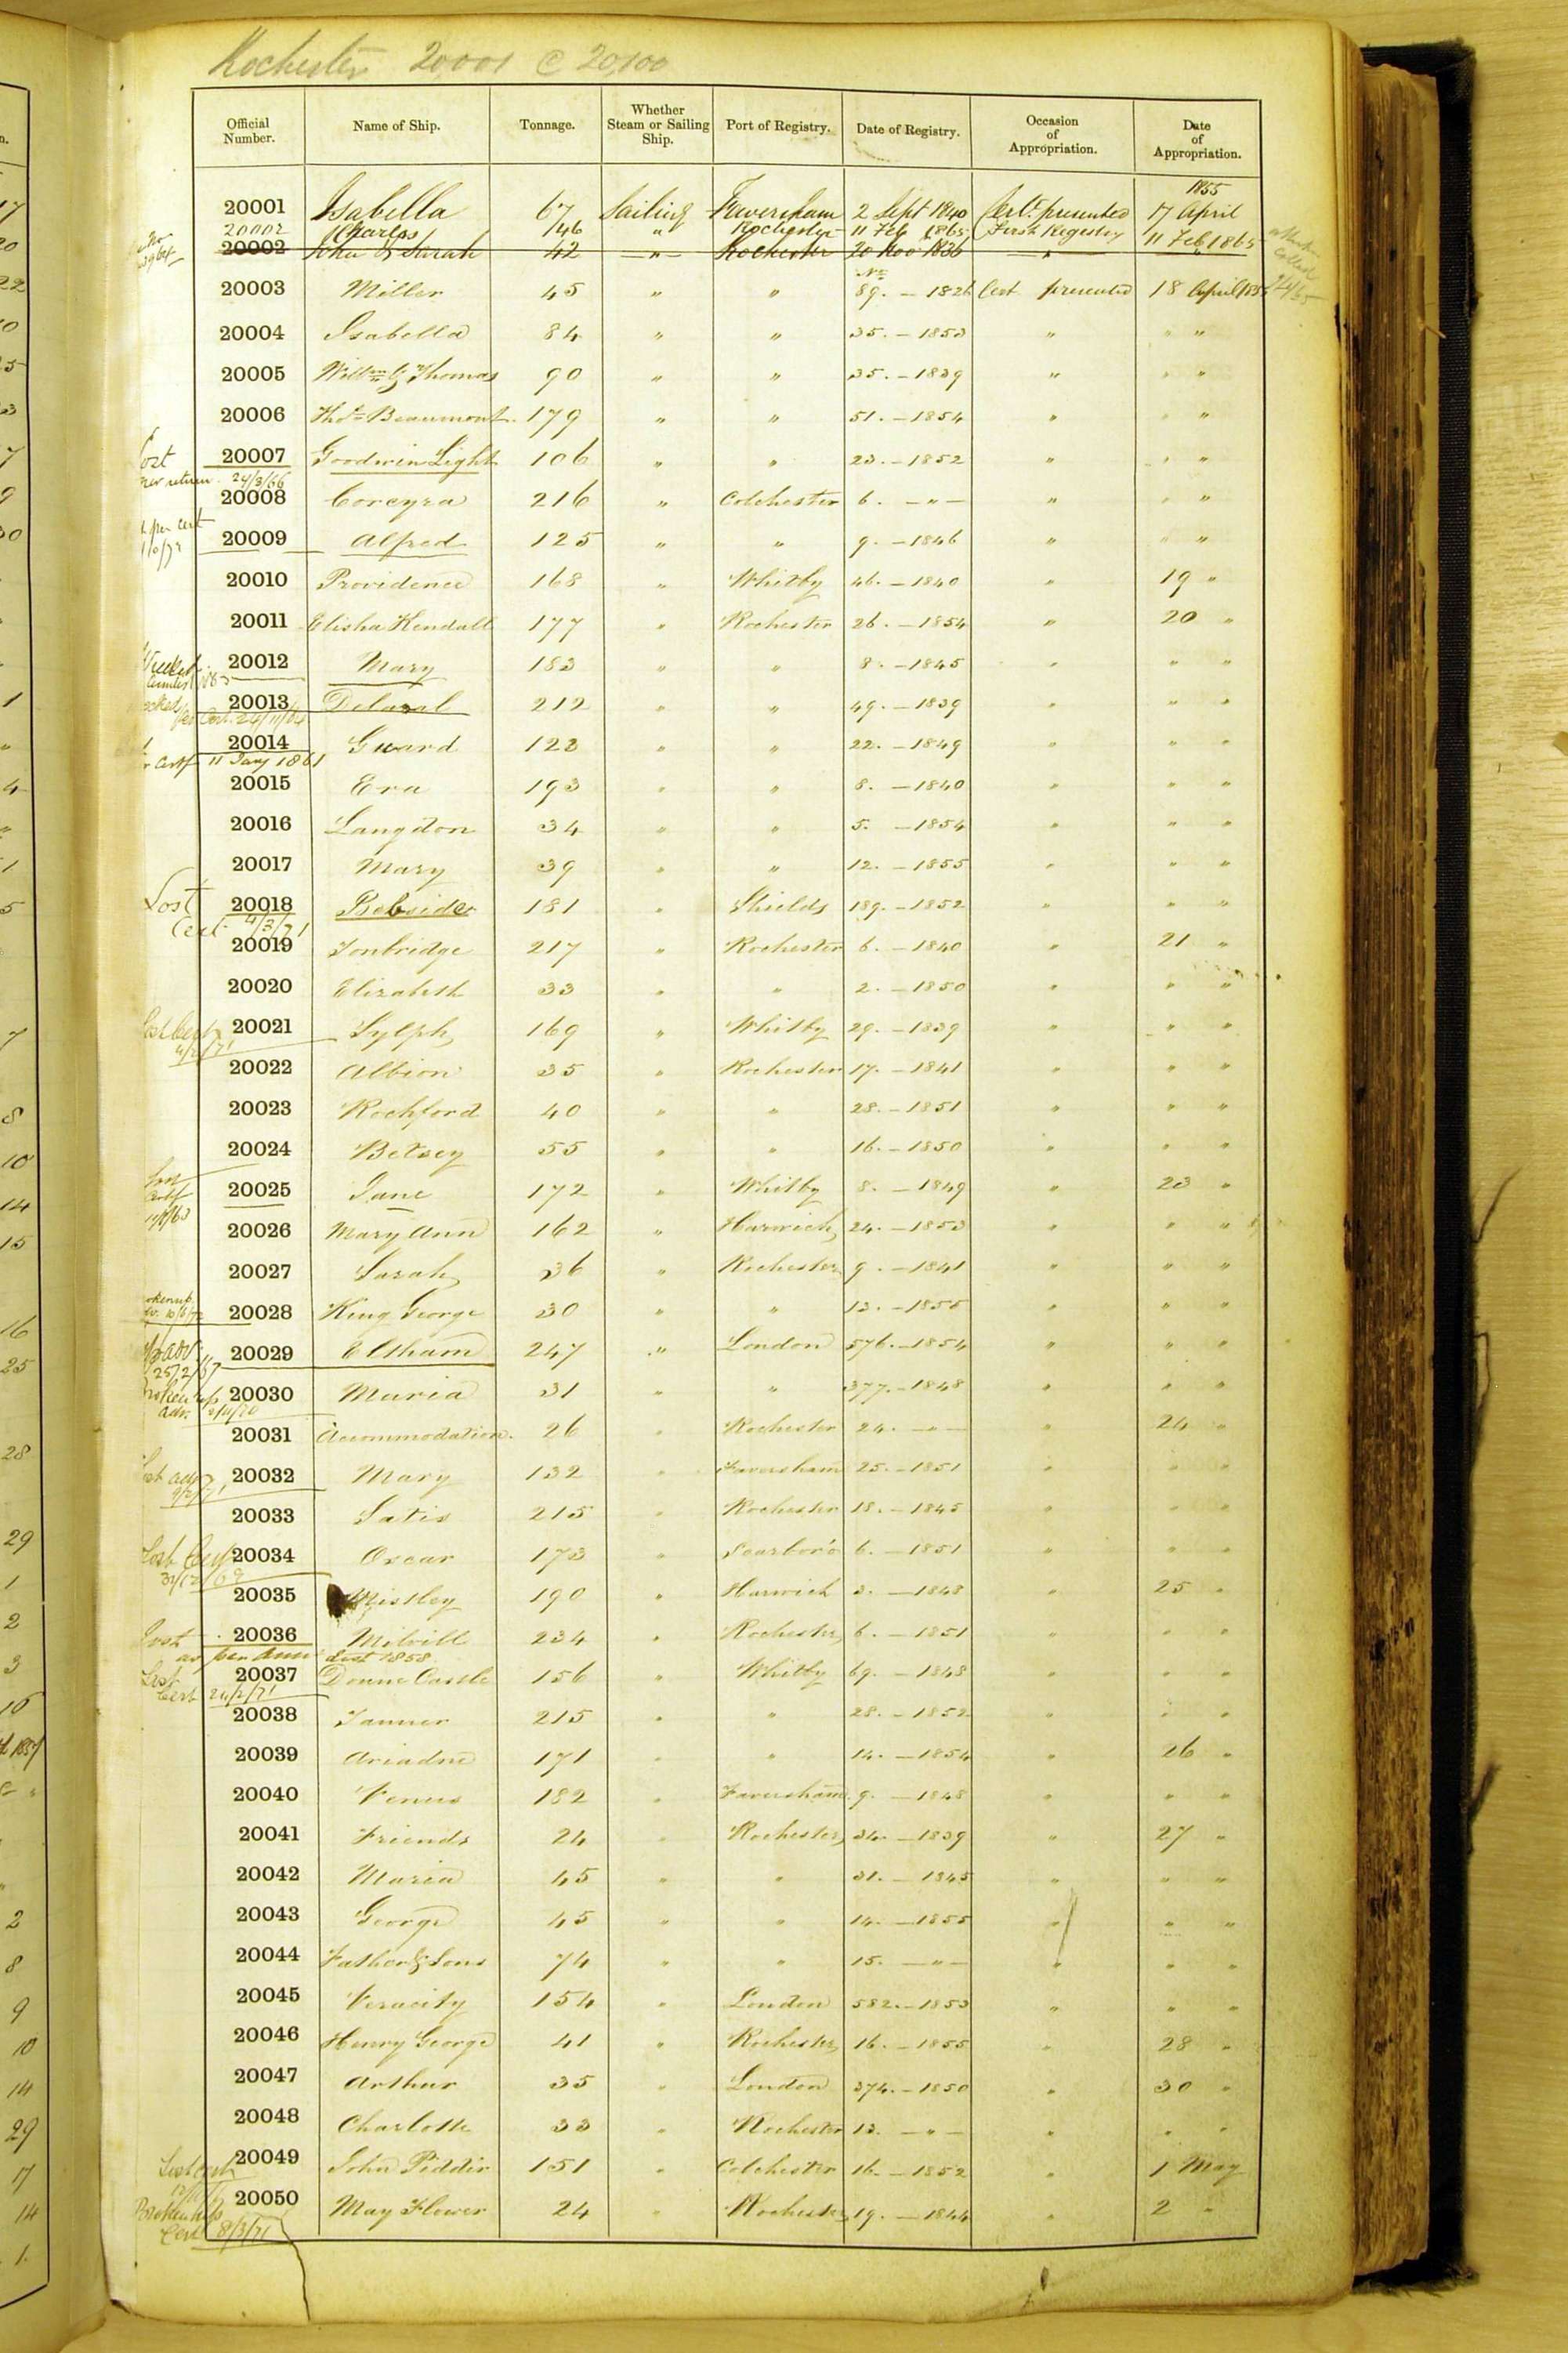 Rochester 20001 @ 20,100
Official Number. Name of Ship. Tonnage. Whether Steam or Sailing Ship. Port of Registry. Date of Registry. Occasion of Appropriation. Date of Appropriation.
1855
20001 Isabella 67 Sailing Faversham 2 Sept 1840 Cert. presented 17 April
20002 Charles 46 " Rochester 11 Feb 1865 First Registry 11 Feb 1865
20002 John & Sarah 42 " Rochester 20 Nov 1836 "
20003 Miller 45 " " No 89. – 1826 Cert presented 18 April 1855
20004 Isabella 84 " " 35. – 1853 " " "
20005 Willm & Thomas 90 " " 35. – 1839 " " "
20006 Thos Beaumont. 179 " " 51. – 1854 " " "
Lost 20007 Goodwin Light 106 " " 23. – 1852 " " "
per return 24/3/66
20008 Corcyra 216 " Colchester 6. – " – " " "
per cert 20009 Alfred 125 " " 9. – 1846 " " "
20010 Providence 168 " Whitby 46. – 1840 " 19 "
20011 Elisha Kendall 177 " Rochester 26. – 1854 " 20 "
20012 Mary 183 " " 8. – 1845 " " "
20013 Delaval 212 " " 49. – 1839 " " "
Cert. 24/11/64
20014 Guard 123 " " 22. – 1849 " " "
Certf 11 Jany 1861
20015 Era 193 " " 8. – 1840 " " "
20016 Langdon 34 " " 5. – 1854 " " "
20017 Mary 39 " " 12. – 1855 " " "
Lost 20018 Bebside 181 " Shields 189. – 1852 " " "
Cert 4/3/71
20019 Tonbridge 217 " Rochester 6. – 1840 " 21 "
20020 Elizabeth 33 " " 2. – 1850 " " "
Lost Cert 20021 Sylph 169 " Whitby 29. – 1839 " " "
20022 Albion 35 " Rochester 17. – 1841 " " "
20023 Rochford 40 " " 28. – 1851 " " "
20024 Betsey 55 " " 16. – 1850 " " "
20025 Jane 172 " Whitby 8. – 1849 " 23 "
20026 Mary Ann 162 " Harwich 24. – 1853 " " "
20027 Sarah 36 " Rochester 9. – 1841 " " "
20028 King George 30 " " 13. – 1855 " " "
20029 Eltham 247 " London 576. – 1854 " " "
25/2/67
Broken up 20030 Maria 31 " " 377. – 1848 " " "
adv.
20031 Accommodation. 26 " Rochester 24. – " – " 24 "
20032 Mary 132 " Faversham 25. – 1851 " " "
20033 Satis 215 " Rochester 18. – 1845 " " "
Lost Cert 20034 Oscar 173 " Scarboro' 6. – 1851 " " "
31/12/69
20035 Mistley 190 " Harwich 3. – 1848 " 25 "
Lost 20036 Melvill 234 " Rochester 6. – 1851 " " "
as per Annl List 1858.
Lost 20037 Doune Castle 156 " Whitby 69. – 1848 " " "
Cert 24/2/71
20038 Tanner 215 " " 28. – 1852 " " "
20039 Ariadne 171 " " 14. – 1854 " 26 "
20040 Venus 182 " Faversham 9. – 1848 " " "
20041 Friends 24 " Rochester 34. – 1839 " 27 "
20042 Maria 45 " " 31. – 1845 " " "
20043 George 45 " " 14. – 1855 " " "
20044 Father & Sons 74 " " 15. – " – " " "
20045 Veracity 154 " London 582. – 1853 " " "
20046 Henry George 41 " Rochester 16. – 1855 " 28 "
20047 Arthur 35 " London 374. – 1850 " 30 "
20048 Charlotte 33 " Rochester 13. – " – " " "
Lost cert 20049 John Piddir 151 " Colchester 16 – 1852 " 1 May
Broken up 20050 May Flower 24 " Rochester 19. – 1844 " 2 "
Cert 8/3/71